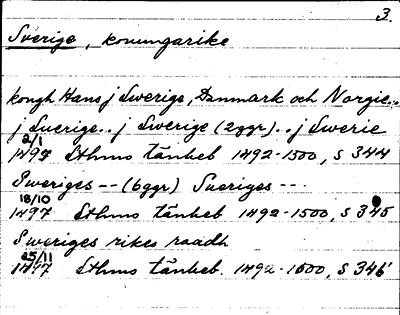 3.
Sverige, konungarike
kongh Hans j Swerige, Danmark och Norgie..
j Suerige.. j Swerige (2ggr).. j Swerie
2/1
1497 Sthms tänkeb 1492-1500, s 344
Sweriges -- (6ggr) Sueriges ---
18/10
1497 Sthms tänkeb 1492-1500, s 345
Sweriges rikes raadh
25/11
1497 Sthms tänkeb. 1492-1500, s 346